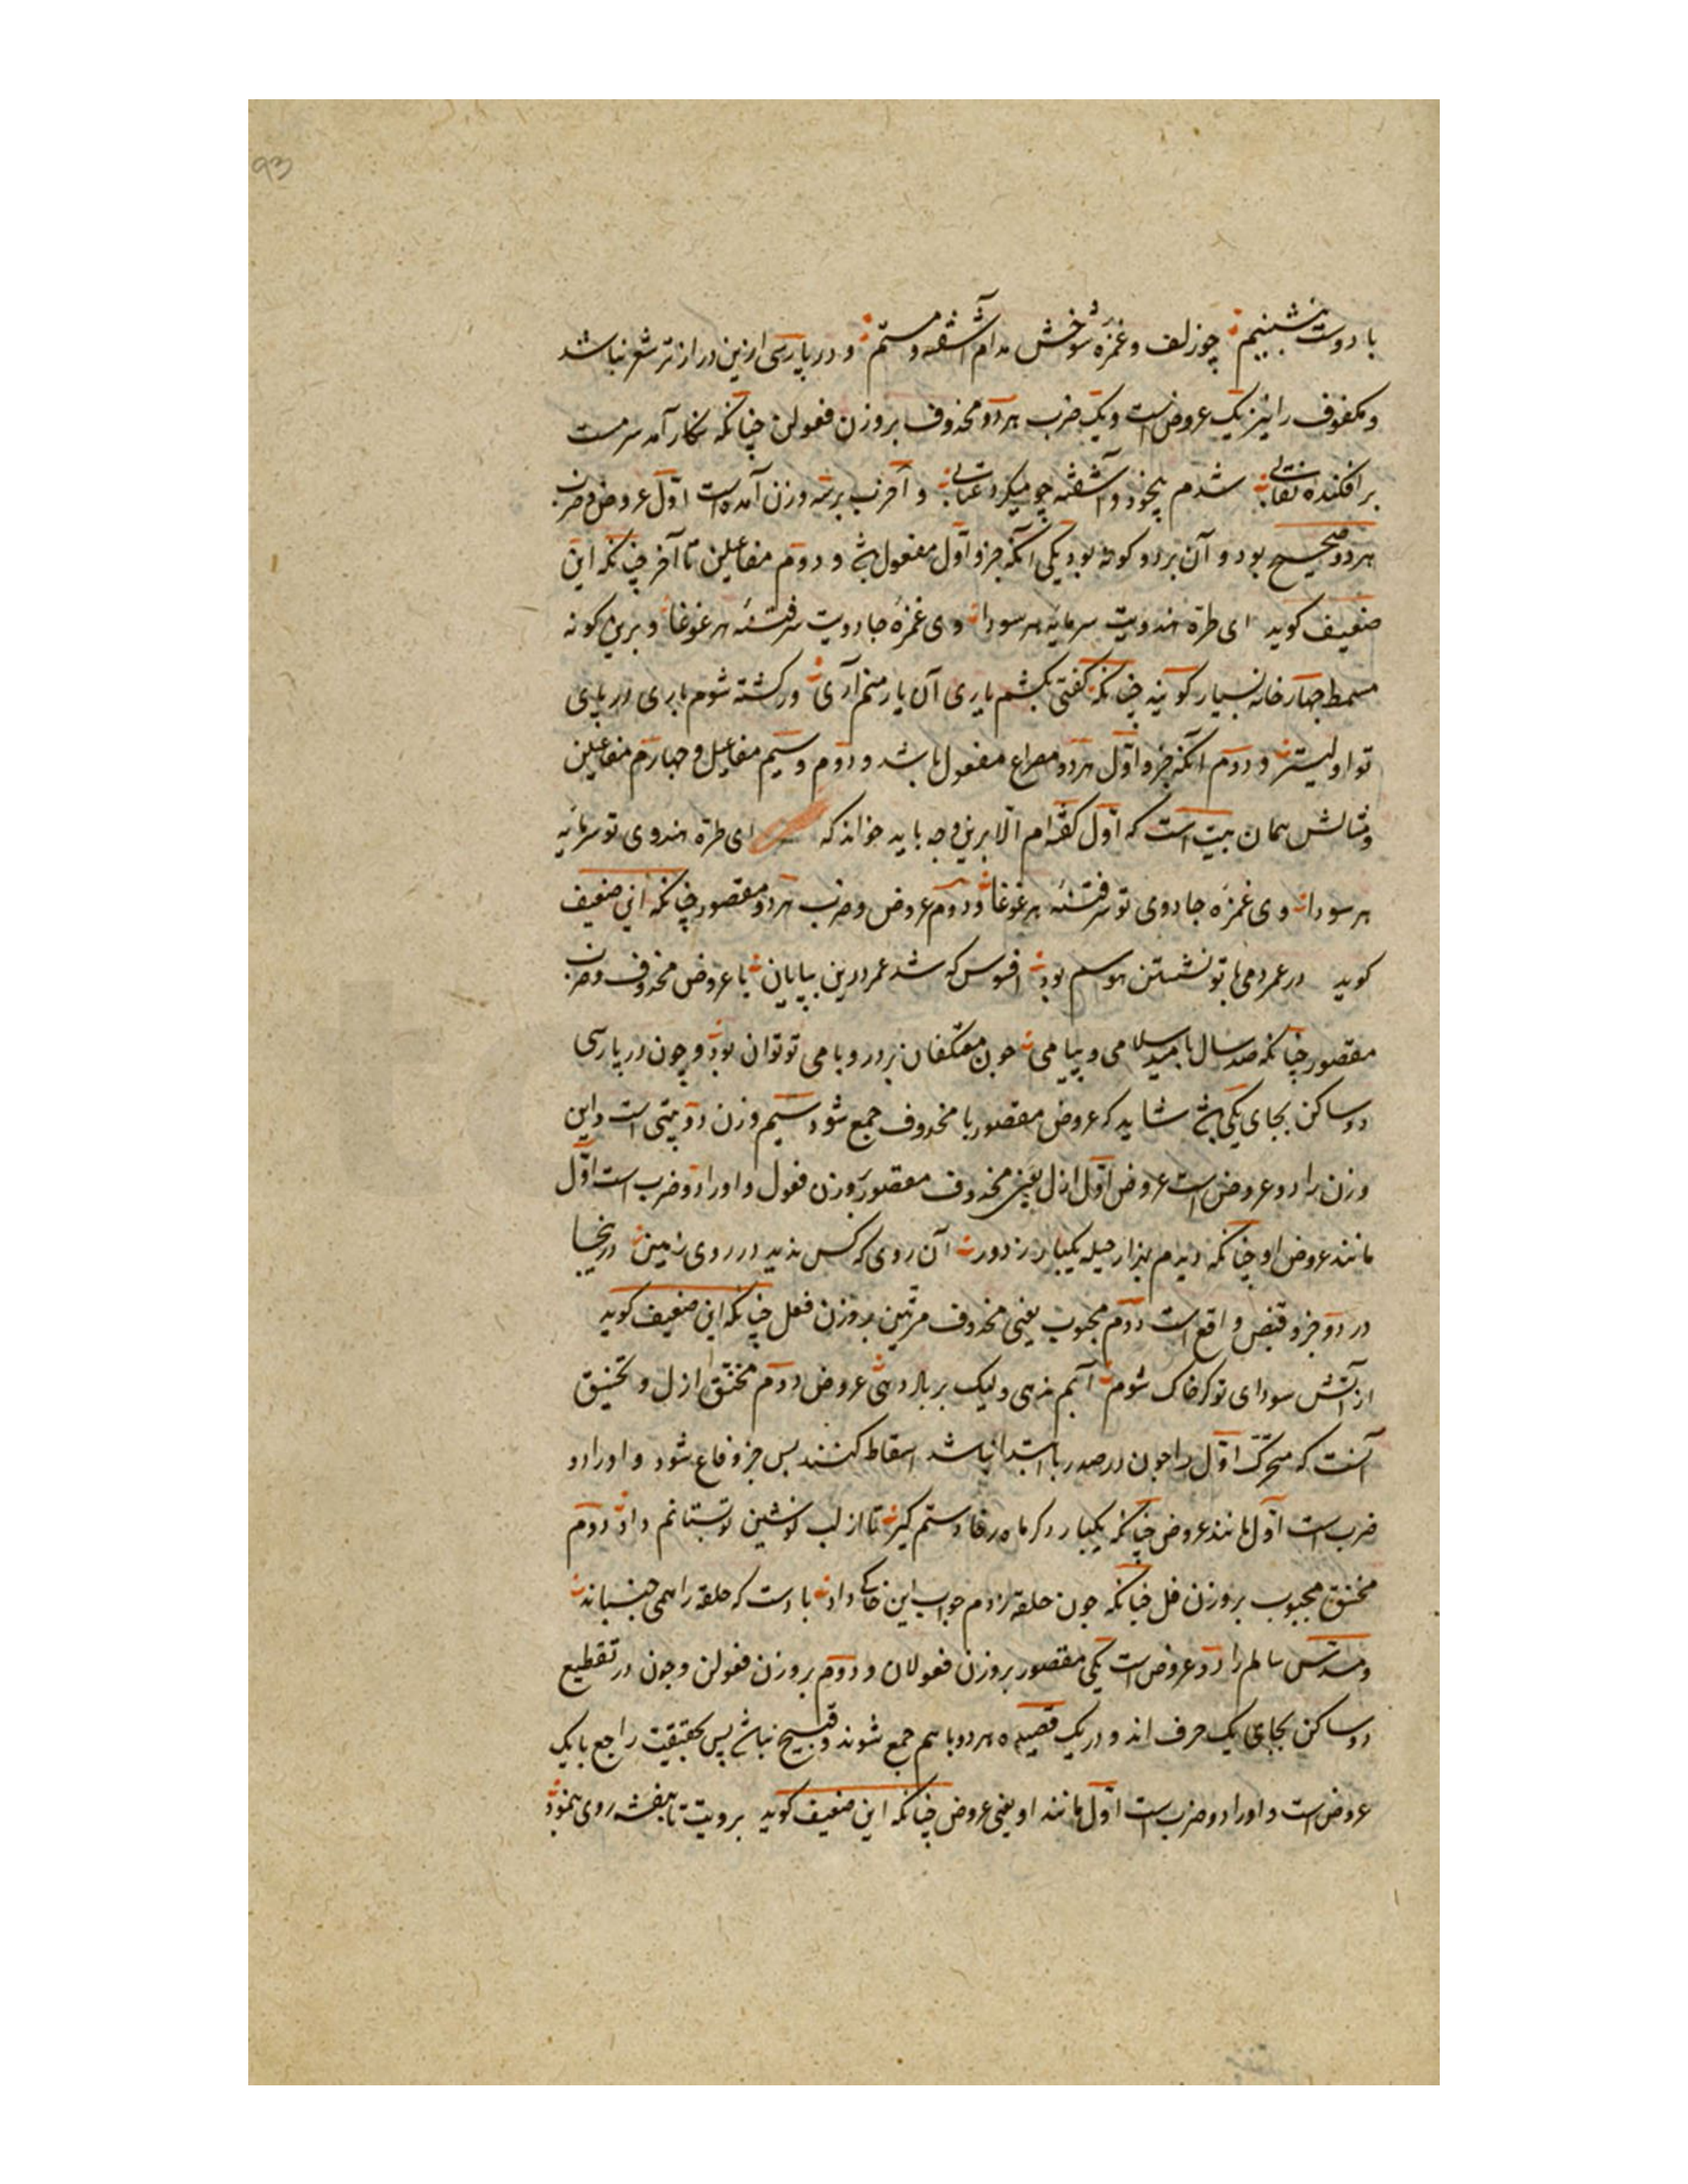 93
با دوست بنشینیم چو زلف و غمزهٔ شوخش مدام آشفته و مستم و در پارسی ازین دراز تر شعر نباشد
و مکفوف را نیز یک عروض است و یک ضرب هر دو محذوف بروزن فعولن چنانکه نکار آمد سرمست
برافکنده نقابی شدم بیخود و آشفته چو میکرد عتابی و اخرب بر سه وزن آمده است اول عروض و ضرب
هر دو صحیح بود و آن بر دو کونه بود یکی آنکه جزو اول مفعول بود و دوم مفاعیلن تا آخر چنانکه این
ضعیف کوید ای طرهٔ هندویت سرمایه هر سودا وی غمزهٔ جادویت سرفتنهٔ هر غوغا و برین کونه
مسمط چهار خانه بسیار کویند چنانکه کفتی بکشم یاری آن یار منم آری ور کشته شوم باری در پای
تو اولیتر و دوم آنکه جزو اول هر دو مصراع مفعول باشد و دوم و سیم مفاعیل و چهارم مفاعیلن
و مثالش همان بیت است که اول کفته‌ام الا برین وجه باید خواند که ای طرهٔ هندوی تو سرمایه
هر سودا وی غمزه جادوی تو سرفتنهٔ هر غوغا و دوم عروض و ضرب هر دو مقصور چنانکه این ضعیف
کوید در عمر دمی با تو نشستن هوسم بود افسوس که شد عمر درین بپایان یا عروض محذوف و ضرب
مقصور چنانکه صد سال بامید سلامی و پیامی چون معتکفان بر در و بامی تو توان بود و چون در پارسی
دو ساکن بجای یکی شاید که عروض مقصور با محذوف جمع شود سیم وزن دوبیتی است و این
وزن را دو عروض است عروض اول ازل یعنی محذوف مقصور بوزن فعول و او را دو ضرب است اول
مانند عروض او چنانکه دیدم بهزار حیله یکبار ز دور آن روی که کس ندید در روی زمین در ینجا
در دو جزو قبض واقع است دوم مجبوب یعنی محذوف مرتین بروزن فعل چنانکه این ضعیف کوید
از آتش سودای تو کر خاک شوم آبم ندهی ولیک بر باد دهی عروض دوم مخنق ازل و تخنیق
آنست که متحرک اول را چون در صدر یا ابتدا نباشد اسقاط کنند پس جزو فاع شود و او را دو
ضرب است اول مانند عروض چنانکه یکبار دکر ماه رخا دستم کیر تا از لب نوشین تو بستانم داد دوم
مخنق مجبوب بروزن فل چنانکه چون حلقه زدم جواب این خاکی داد بادست که حلقه را همی جنباند
و مسدس سالم را دو عروض است یکی مقصور بروزن فعولان و دوم بروزن فعولن و چون در تقطیع
دو ساکن بجای یک حرف اند و در یک قصیده هر دو با هم جمع شوند و قبیح نباشد پس بحقیقت راجع با یک
عروض است و او را دو ضرب است اول مانند او یعنی عروض چنانکه این ضعیف کوید برویت تا بنفشه روی بنمود